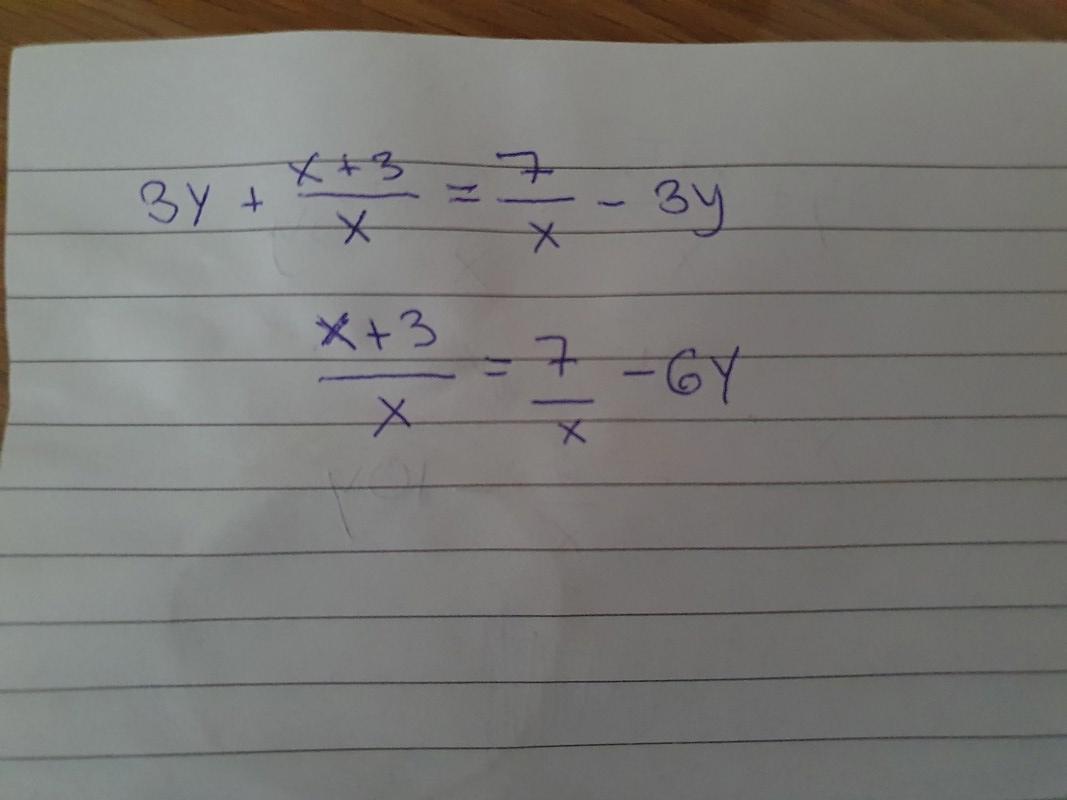 3y + (x+3)/x = 7/x - 3y
(x+3)/x = 7/x - 6y